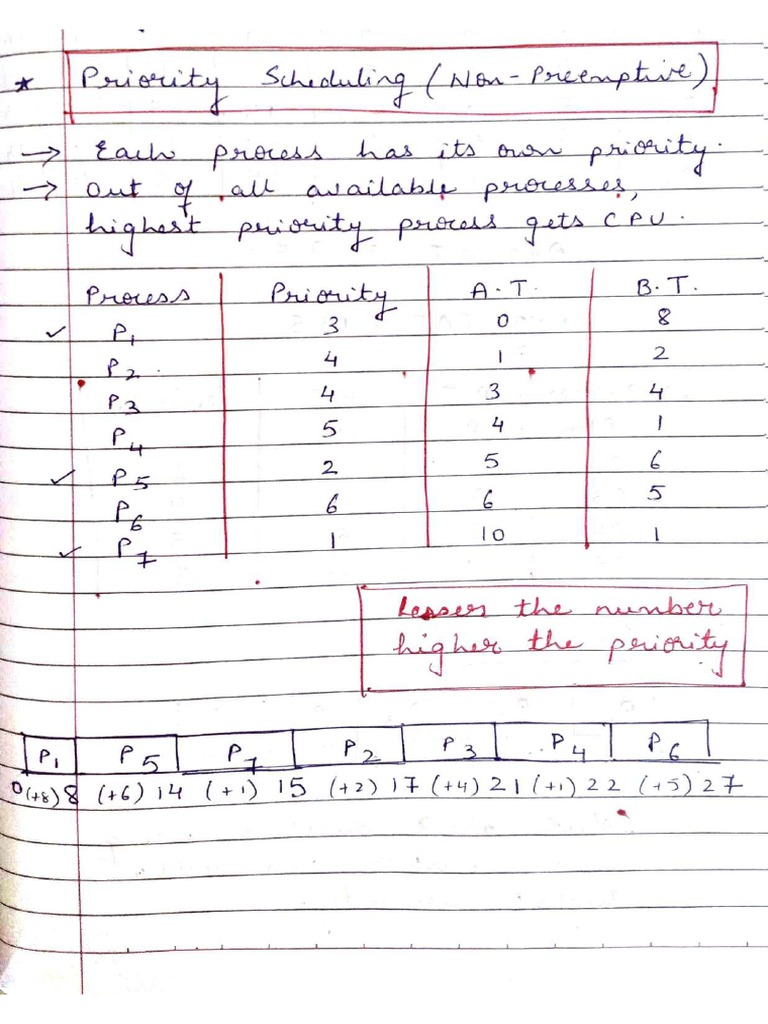 * Priority Scheduling (Non-Preemptive)
→ Each process has its own priority.
→ Out of all available processes,
highest priority process gets CPU.
Process Priority A.T. B.T.
✓ P1 3 0 8
P2 4 1 2
P3 4 3 4
P4 5 4 1
✓ P5 2 5 6
P6 6 6 5
✓ P7 1 10 1
Lesser the number
higher the priority
P1 P5 P7 P2 P3 P4 P6
0 (+8) 8 (+6) 14 (+1) 15 (+2) 17 (+4) 21 (+1) 22 (+5) 27